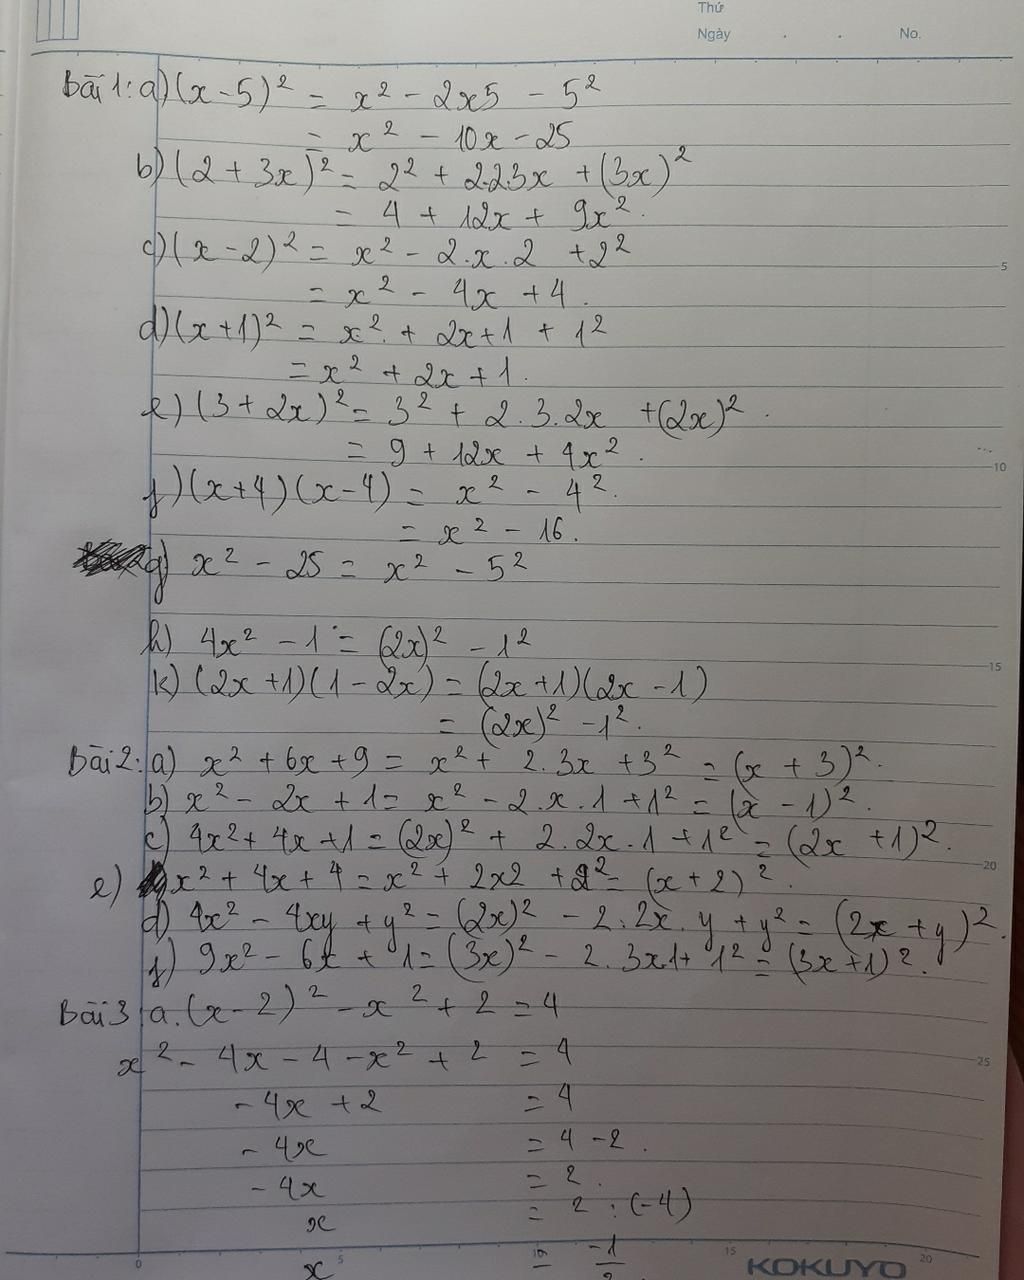 Thứ
Ngày . . No.
Bài 1: a) (x - 5)² = x² - 2x5 - 5²
= x² - 10x - 25
b) (2 + 3x)² = 2² + 2.2.3x + (3x)²
= 4 + 12x + 9x².
c) (x - 2)² = x² - 2.x.2 + 2²
= x² - 4x + 4.
5
d) (x+1)² = x² + 2x+1 + 1²
= x² + 2x + 1.
e) (3 + 2x)² = 3² + 2.3.2x + (2x)².
= 9 + 12x + 4x².
10
f) (x+4)(x-4) = x² - 4².
= x² - 16.
g) x² - 25 = x² - 5²
h) 4x² - 1 = (2x)² - 1²
15
k) (2x+1)(1 - 2x) = (2x+1)(2x - 1)
= (2x)² - 1².
Bài 2: a) x² + 6x + 9 = x² + 2.3x + 3² = (x + 3)².
b) x² - 2x + 1 = x² - 2.x.1 + 1² = (x - 1)².
c) 4x² + 4x + 1 = (2x)² + 2.2x.1 + 1² = (2x + 1)².
20
e) x² + 4x + 4 = x² + 2x2 + 2² = (x + 2)².
d) 4x² - 4xy + y² = (2x)² - 2.2x.y + y² = (2x + y)².
f) 9x² - 6x + 1 = (3x)² - 2.3x1 + 1² = (3x+1)².
Bài 3 a. (x - 2)² - x² + 2 = 4
x² - 4x - 4 - x² + 2 = 4
25
- 4x + 2 = 4
- 4x = 4 - 2.
- 4x = 2.
x = 2 : (-4)
x = -1/2.
0 5 10 15 20
KOKUYO